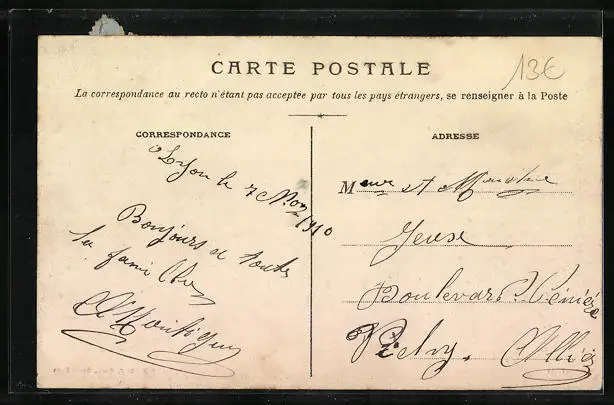 13€
CARTE POSTALE
La correspondance au recto n'étant pas acceptée par tous les pays étrangers, se renseigner à la Poste
CORRESPONDANCE
ADRESSE
Lyon le 7 1910
Bonjours a toute
la famille
Meur et
Boulevard
Vichy. Allier